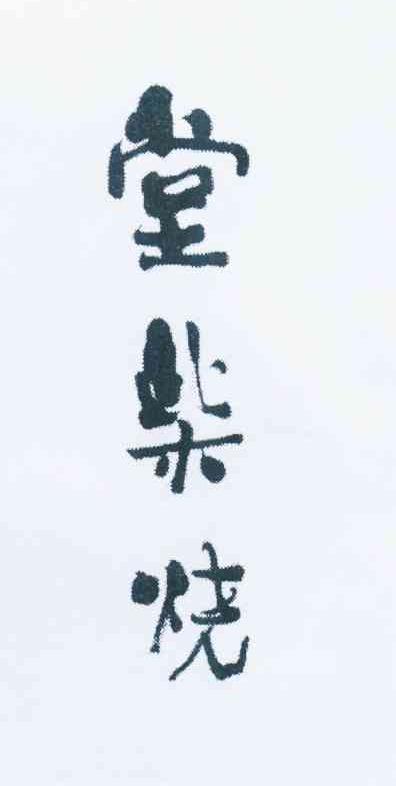 堂柴烧